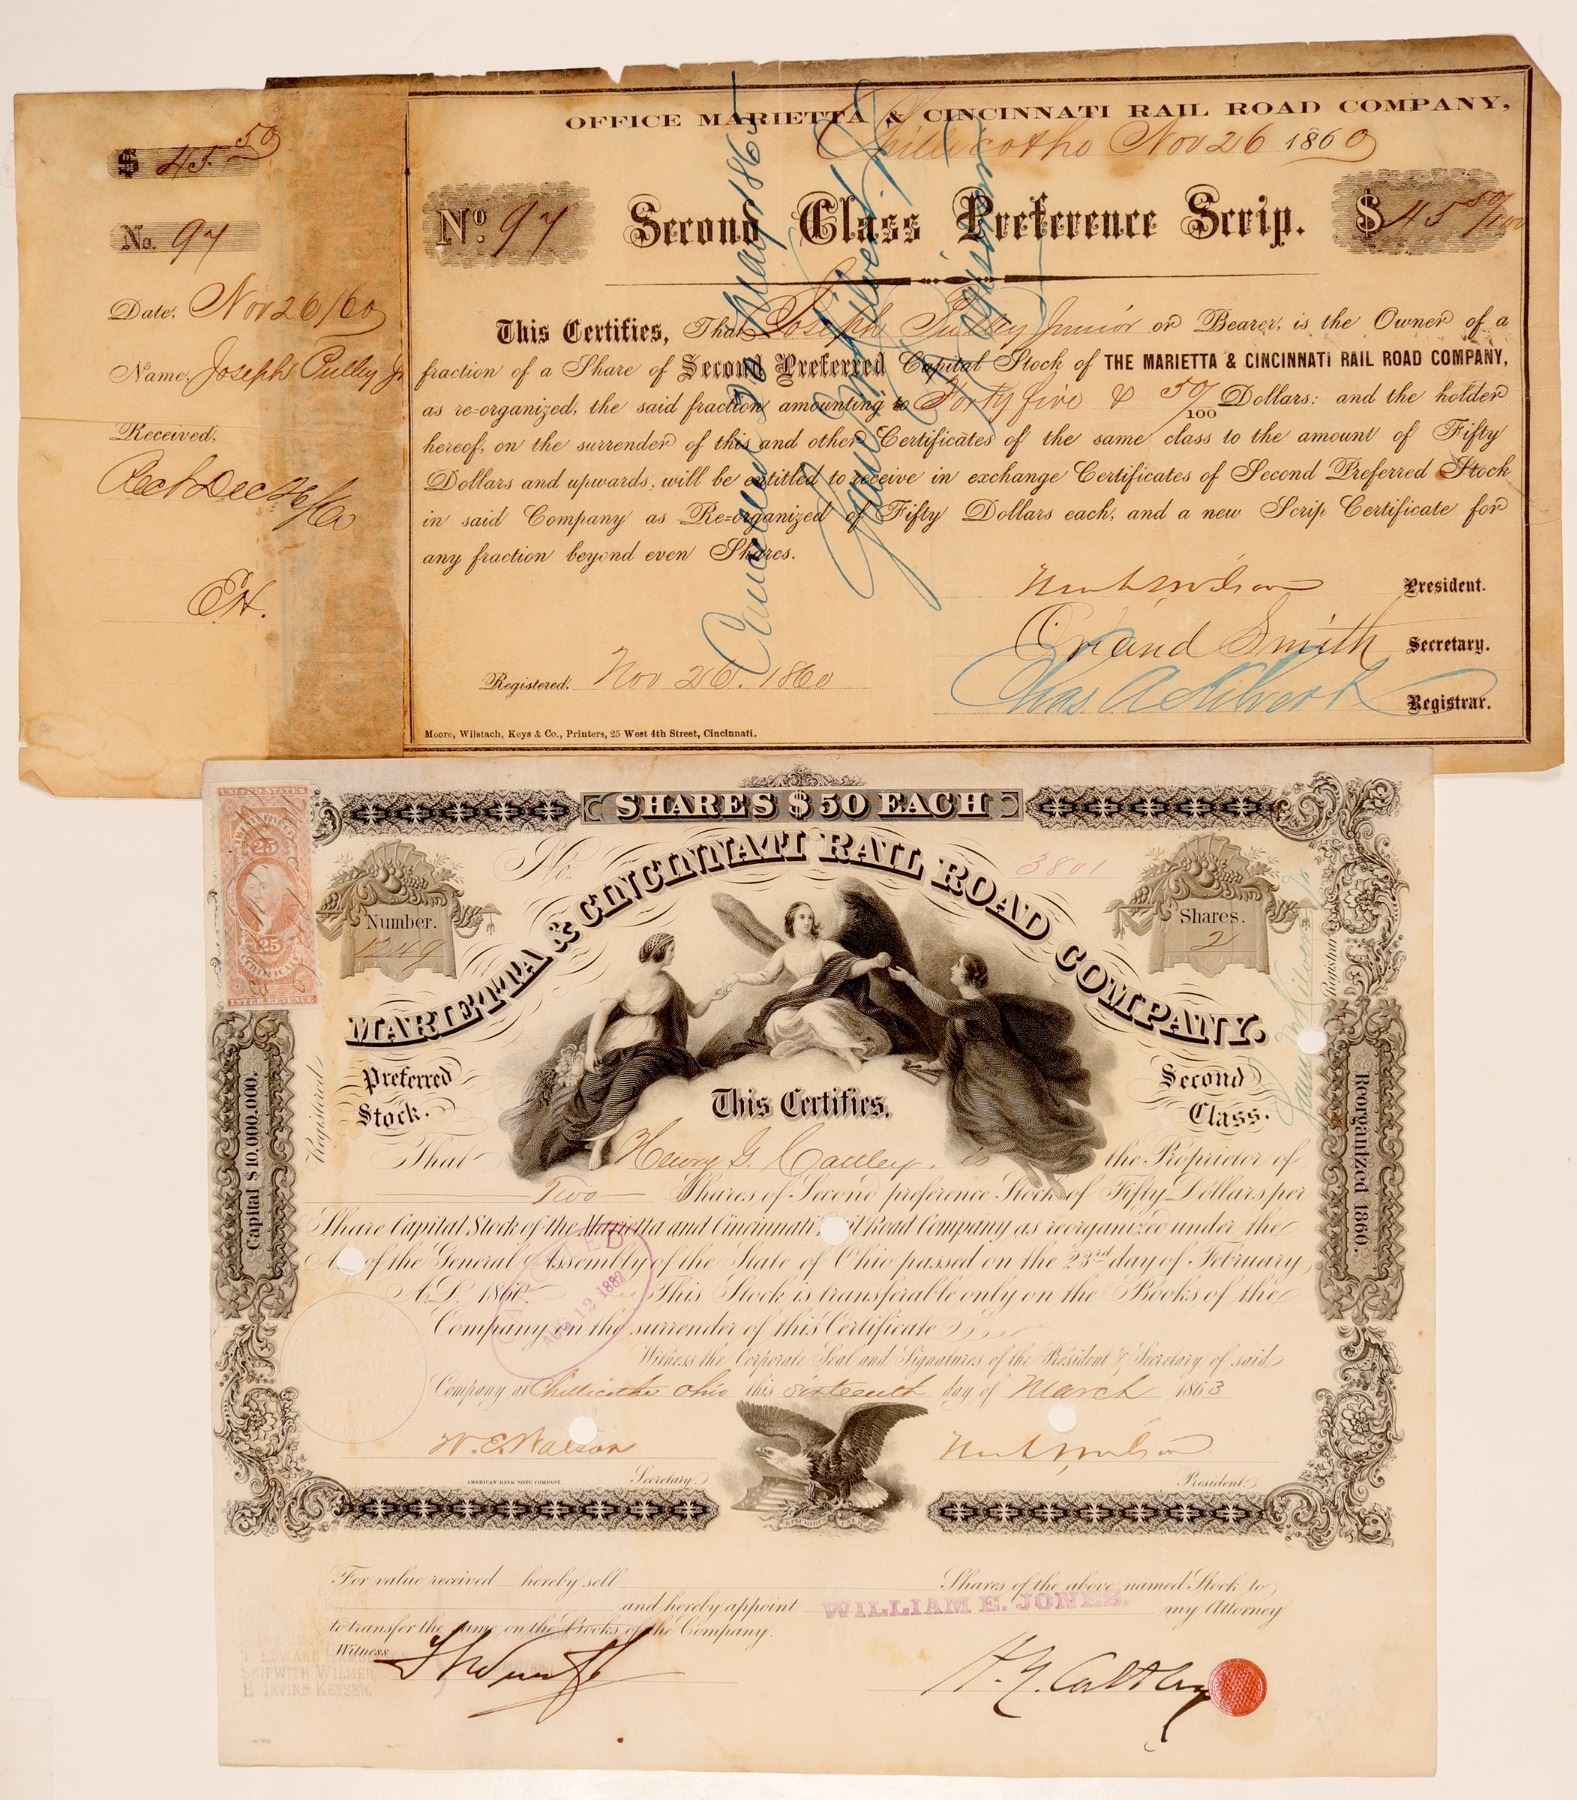 OFFICE MARIETTA & CINCINNATI RAIL ROAD COMPANY,
Chillicothe Nov 26 1860
$ 45.50
No. 97
Date, Nov 26/60
Name, Joseph Pulley Jr
Received,
Rec't Dec 26/60
No. 97 Second Class Preference Scrip. $ 45 50/100
This Certifies, That Joseph Pulley Junior or Bearer, is the Owner of a
fraction of a Share of Second Preferred Capital Stock of THE MARIETTA & CINCINNATI RAIL ROAD COMPANY,
as re-organized, the said fraction amounting to Forty five & 50/100 Dollars; and the holder
hereof, on the surrender of this and other Certificates of the same class to the amount of Fifty
Dollars and upwards, will be entitled to receive in exchange Certificates of Second Preferred Stock
in said Company as Re=organized of Fifty Dollars each, and a new Scrip Certificate for
any fraction beyond even Shares.
President.
Orland Smith Secretary.
Registered, Nov 26. 1860
Registrar.
Moore, Wilstach, Keys & Co., Printers, 25 West 4th Street, Cincinnati.
Cancelled May 1865
SHARES $50 EACH
UNITED STATES
25
25
INTER. REVENUE
No. 3801
Number. 1249
Shares. 2
MARIETTA & CINCINNATI RAIL ROAD COMPANY.
Preferred Stock.
Second Class.
Registered
Registrar
Capital $10,000,000.
Reorganized 1860.
This Certifies,
That Henry G. is the Proprietor of
Two Shares of Second preference Stock of Fifty Dollars per
Share Capital Stock of the Marietta and Cincinnati Rail Road Company as reorganized under the
of the General Assembly of the State of Ohio passed on the 23rd day of February
A.D. 1860. This Stock is transferable only on the Books of the
Company on the surrender of this Certificate
CANCELLED
AUG 13 1882
Witness the Corporate Seal and Signatures of the President & Secretary of said
Company at Chillicothe Ohio this sixteenth day of March 1863
W. E. Watson
Secretary
President
AMERICAN BANK NOTE COMPANY.
For value received hereby sell Shares of the above named Stock to
and hereby appoint WILLIAM E. JONES. my Attorney
to transfer the same on the Books of the Company.
Witness
SKIPWITH WILMER,
H. IRVINE KEYSER.